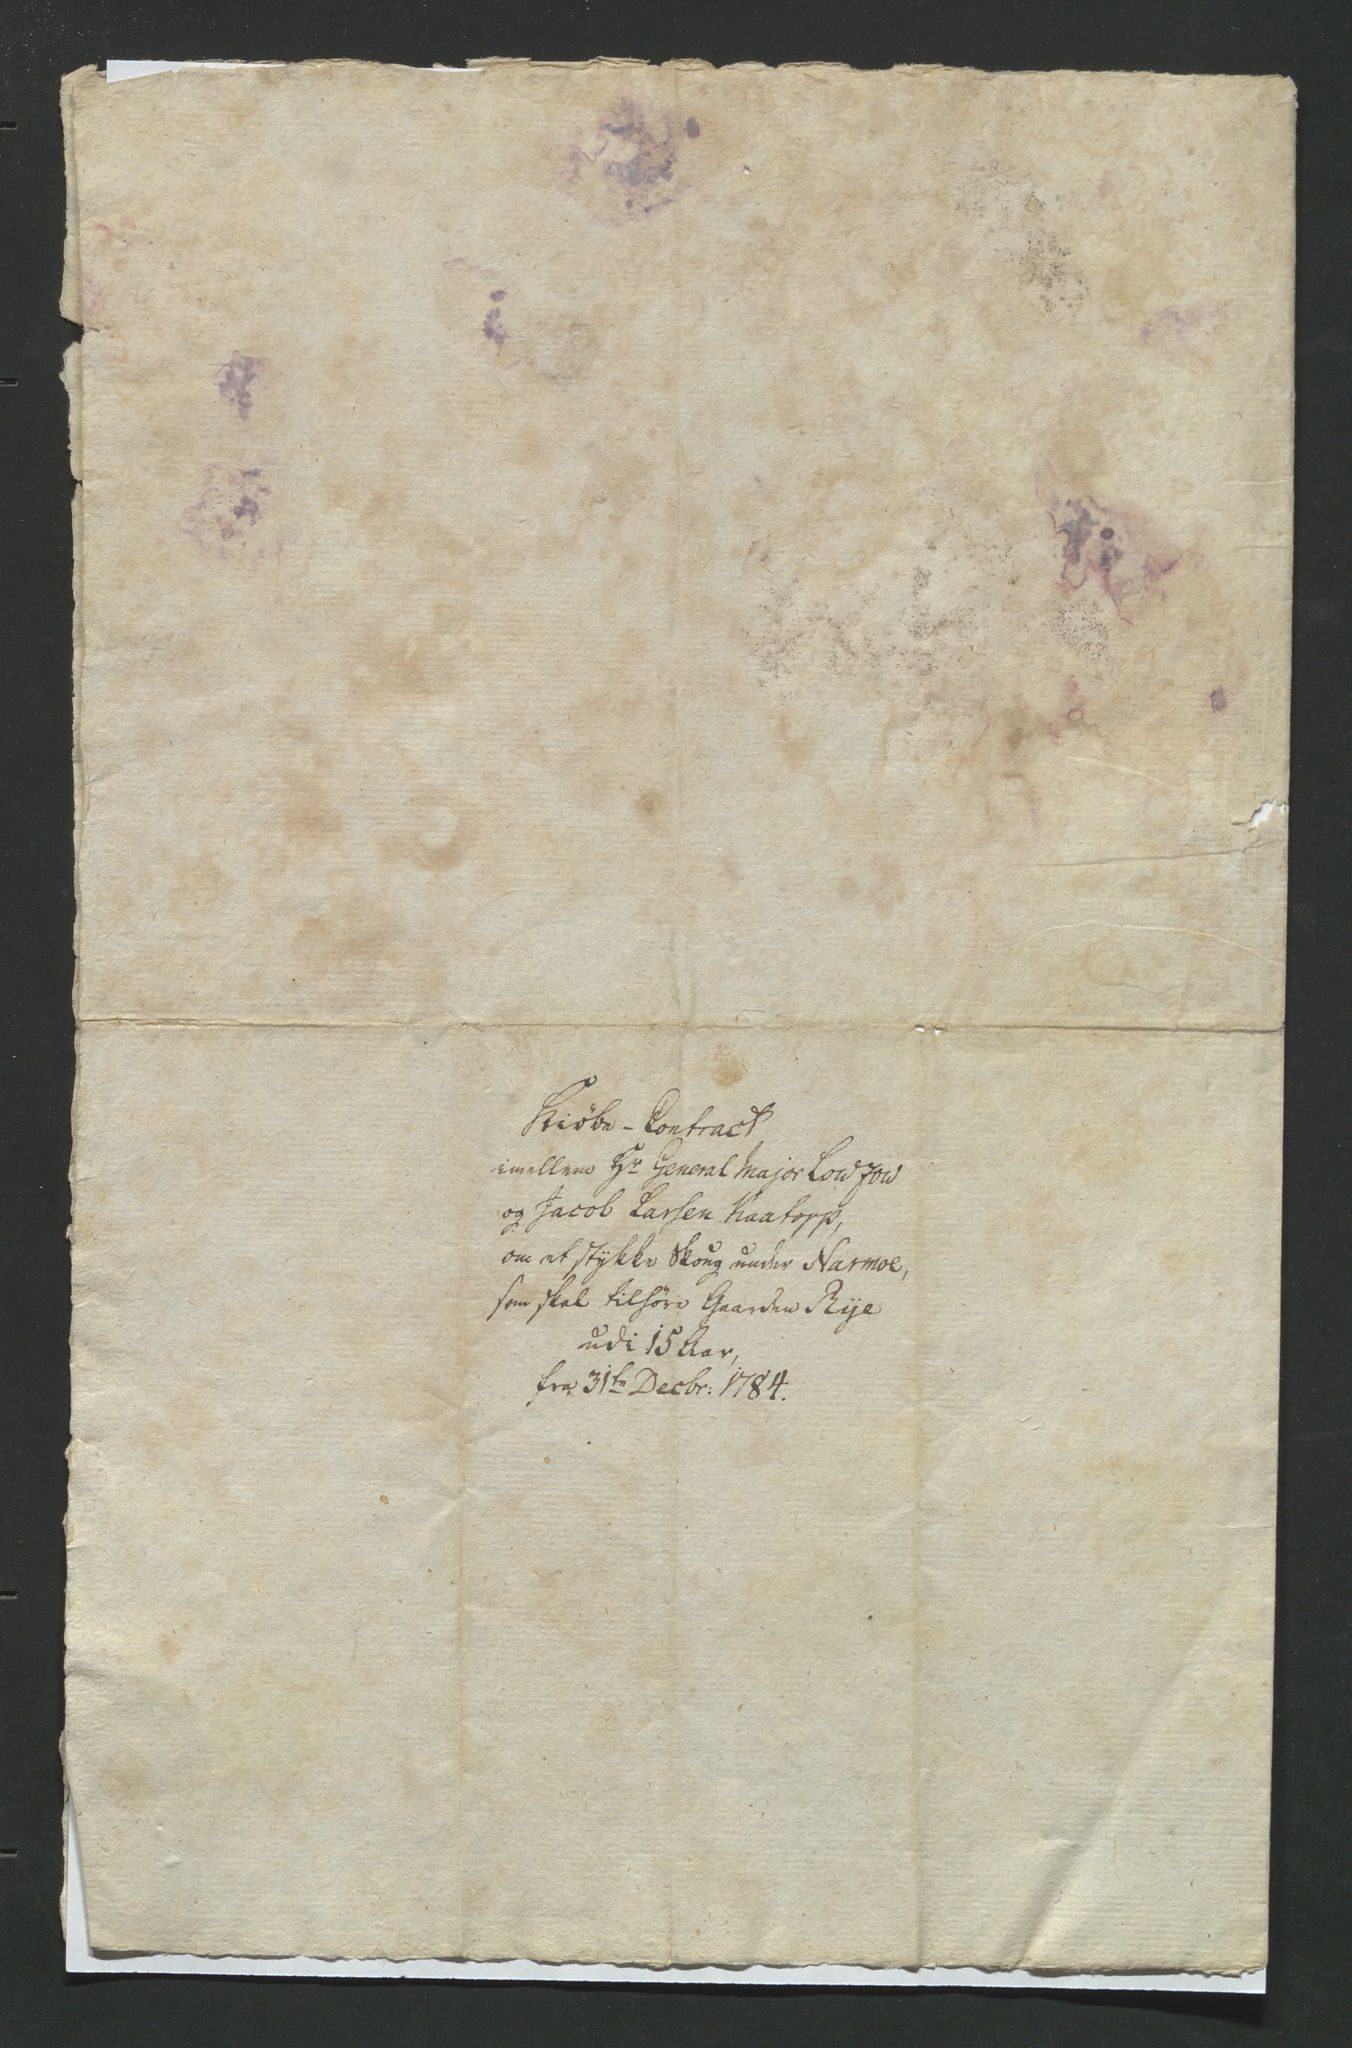 Kiöbe-Contract
imellem Hr General Major Lowzow
og Jacob Larsen Kaatorp,
om et stykke Skoug under Narmoe,
som skal tilhöre Gaarden Rije
udi 15 Aar,
fra 31te Decbr: 1784.